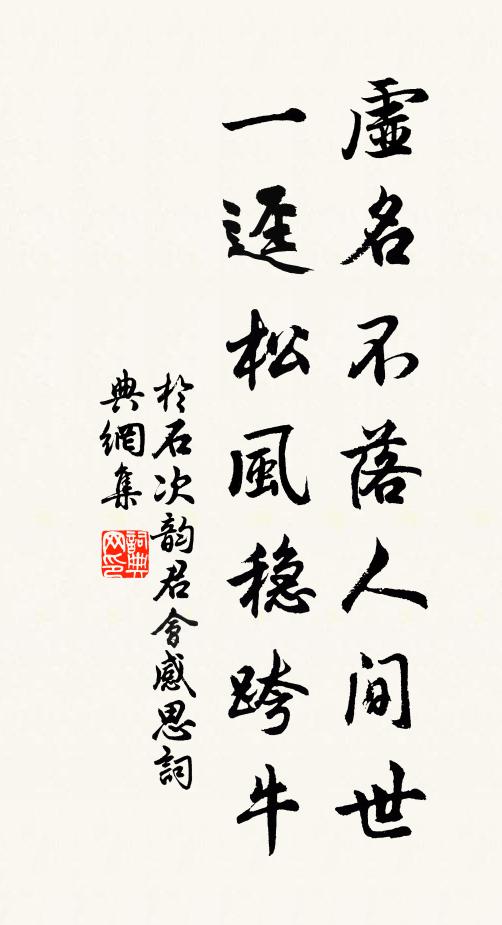 虛名不落人間世
一逕松風穏跨牛
於石次韵君會感思詞
典網集
詞典
网印